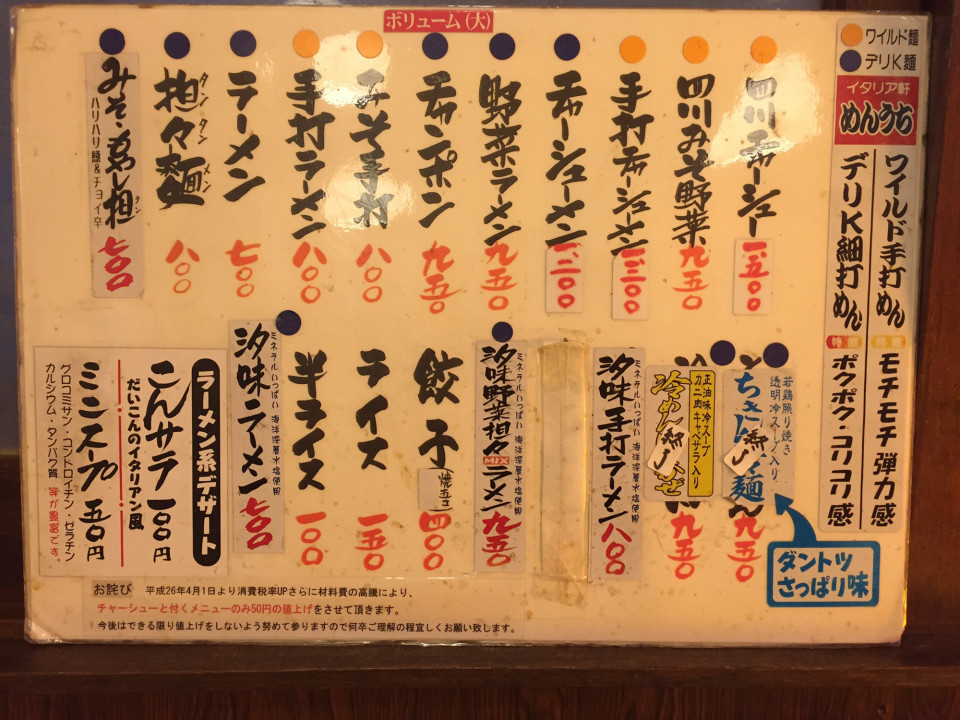 ボリューム(大)
ワイルド麵
デリK麵
イタリア軒
めんうち
ワイルド手打めん
特徴
モチモチ 弾力感
デリK細打めん
特徴
ポクポク・コリコリ感
四川チャーシュー
一、五〇〇
四川みそ野菜
九五〇
手打チャーシューメン
一、三〇〇
チャーシューメン
一、二〇〇
野菜ラーメン
九五〇
チャンポン
九五〇
みそ手打
八〇〇
手打ラーメン
八〇〇
ラーメン
七〇〇
担々麺
タンタンメン
八〇〇
みそ・蒸し担
タン
ハリハリ麵&チョイ辛
七〇〇
若鶏照り焼き
透明冷スープ入り
九五〇
ダントツ
さっぱり味
正油味冷スープ
カニ肉キャベサラ入り
冷めん
九五〇
ミネラルいっぱい 海洋深層水塩使用
汐味手打ラーメン
八〇〇
ミネラルいっぱい 海洋深層水塩使用
汐味野菜担々MIXラーメン
九五〇
餃子
焼 五コ
四〇〇
ライス
一五〇
半ライス
一〇〇
ミネラルいっぱい 海洋深層水塩使用
汐味ラーメン
七〇〇
ラーメン系デザート
こんサラ 一八〇円
だいこんのイタリアン風
ミニスープ 五〇円
グロコミサン・コンドロイチン・ゼラチン
カルシウム・タンパク質 等が豊富です。
お詫び 平成26年4月1日より消費税率UPさらに材料費の高騰により、
チャーシューと付くメニューのみ50円の値上げをさせて頂きます。
今後はできる限り値上げをしないよう努めて参りますので何卒ご理解の程宜しくお願い致します。